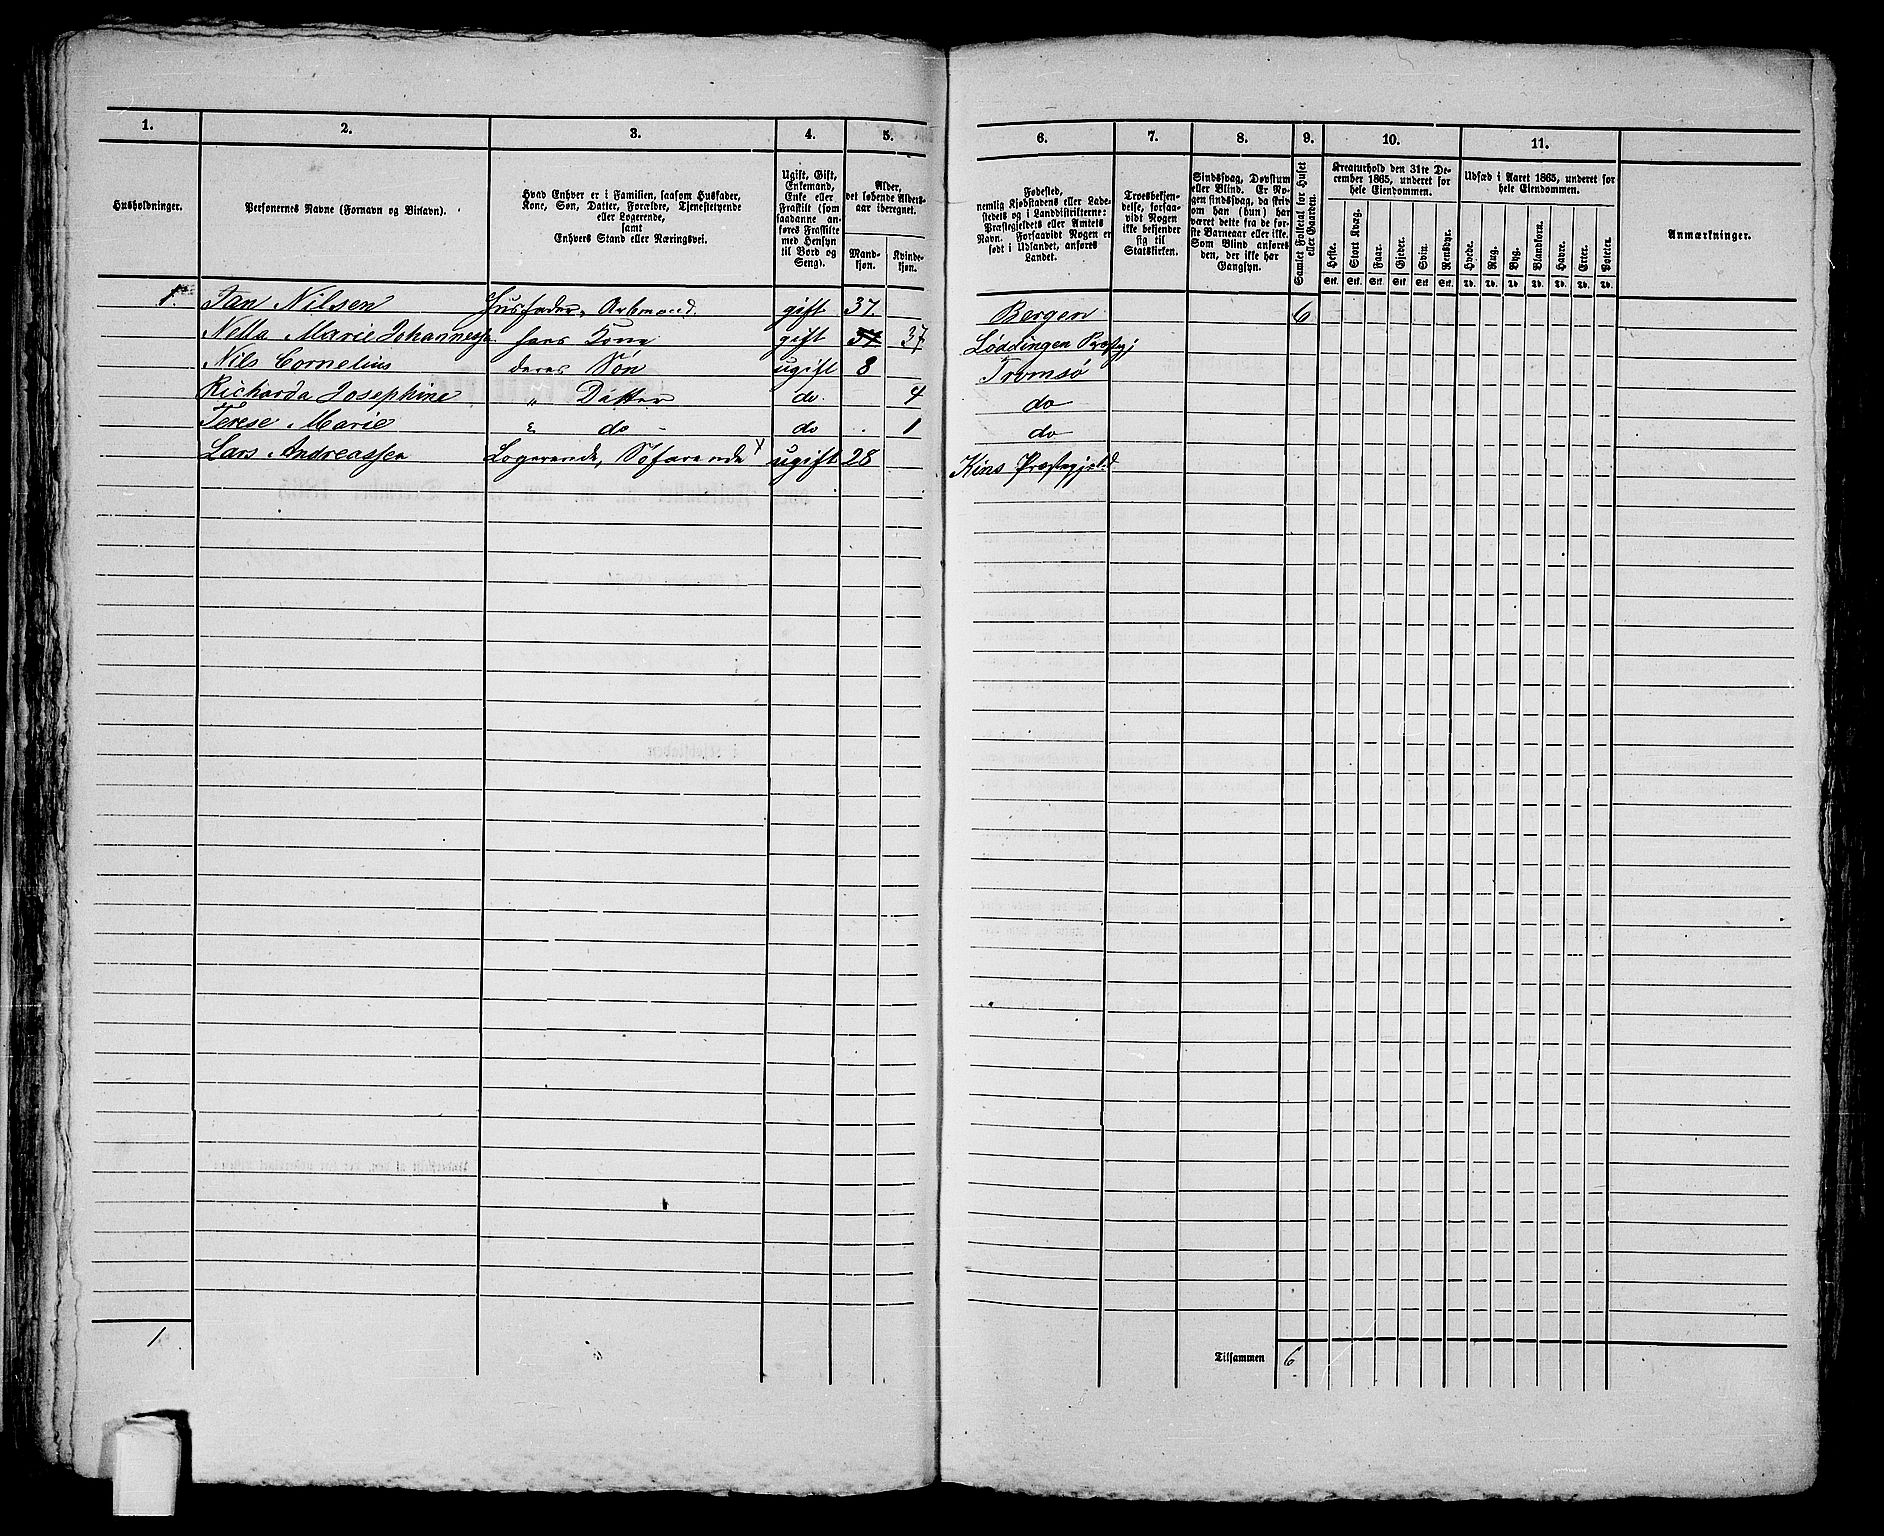 1. 2. 3. 4. 5. 6. 7. 8. 9. 10. 11.
Husholdninger.
Personernes Navne (Fornavn og Binavn).
Hvad Enhver er i Familien, saasom Husfader,
Kone, Søn, Datter, Forældre, Tjenestetyende
eller Logerende,
samt
Enhvers Stand eller Næringsvei.
Ugift, Gift,
Enkemand,
Enke eller
Fraskilt (som
saadanne an-
føres Fraskilte
med Hensyn
til Bord og
Seng).
Alder,
det løbende Alders-
aar iberegnet.
Mand-
kjøn.
Kvinde-
kjøn.
Fødested,
nemlig Kjøbstadens eller Lade-
stedets og i Landdistrikterne:
Præstegjeldets eller Amtets
Navn. Forsaavidt Nogen er
født i Udlandet, anføres
Landet.
Troesbekjen-
delse, forsaa-
vidt Nogen
ikke bekjender
sig til
Statskirken.
Sindssvag, Døvstum
eller Blind. Er No-
gen sindssvag, da skriv
om han (hun) har
været dette fra de før-
ste Barneaar eller ikke.
Som Blind anføres
den, der ikke har
Gangsyn.
Samlet Folketal for Huset
eller Gaarden.
Kreaturhold den 31te De-
cember 1865, underet for
hele Eiendommen.
Heste. Stort Kvæg. Faar. Gjeder. Svin. Rensdyr.
Stk. Stk. Stk. Stk. Stk. Stk.
Udsæd i Aaret 1865, underet for
hele Eiendommen.
Hvede. Rug. Byg. Blandkorn. Havre. Erter. Poteter.
Td. Td. Td. Td. Td. Td. Td.
Anmærkninger.
1. Jan Nilsen Husfader, Arbmand. gift 37. Bergen 6
Netta Marie Johannesn. hans Kone gift 37 37 Løddingen Præstgj
Nils Cornelius deres Søn ugift 8 Tromsø
Richarda Josephine " Datter do. 4 do
Terese Marie " do do 1 do
Lars Andreassen Logerende, Søfarende x ugift 28 Kins Præstegjeld
1 Tilsammen 6